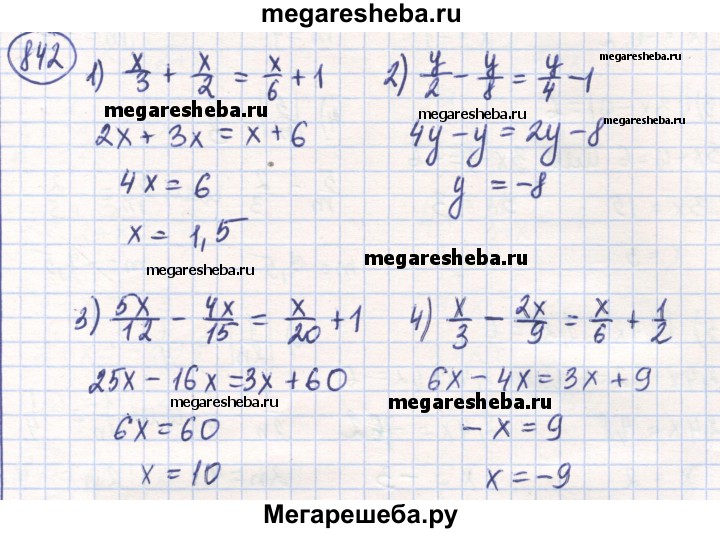 megaresheba.ru
842
1) x/3 + x/2 = x/6 + 1
2) y/2 - y/8 = y/4 - 1
megaresheba.ru
megaresheba.ru
megaresheba.ru
megaresheba.ru
2x + 3x = x + 6
4y - y = 2y - 8
4x = 6
y = -8
x = 1,5
megaresheba.ru
megaresheba.ru
3) 5x/12 - 4x/15 = x/20 + 1
4) x/3 - 2x/9 = x/6 + 1/2
25x - 16x = 3x + 60
6x - 4x = 3x + 9
megaresheba.ru
megaresheba.ru
6x = 60
- x = 9
x = 10
x = -9
Мегарешеба.ру